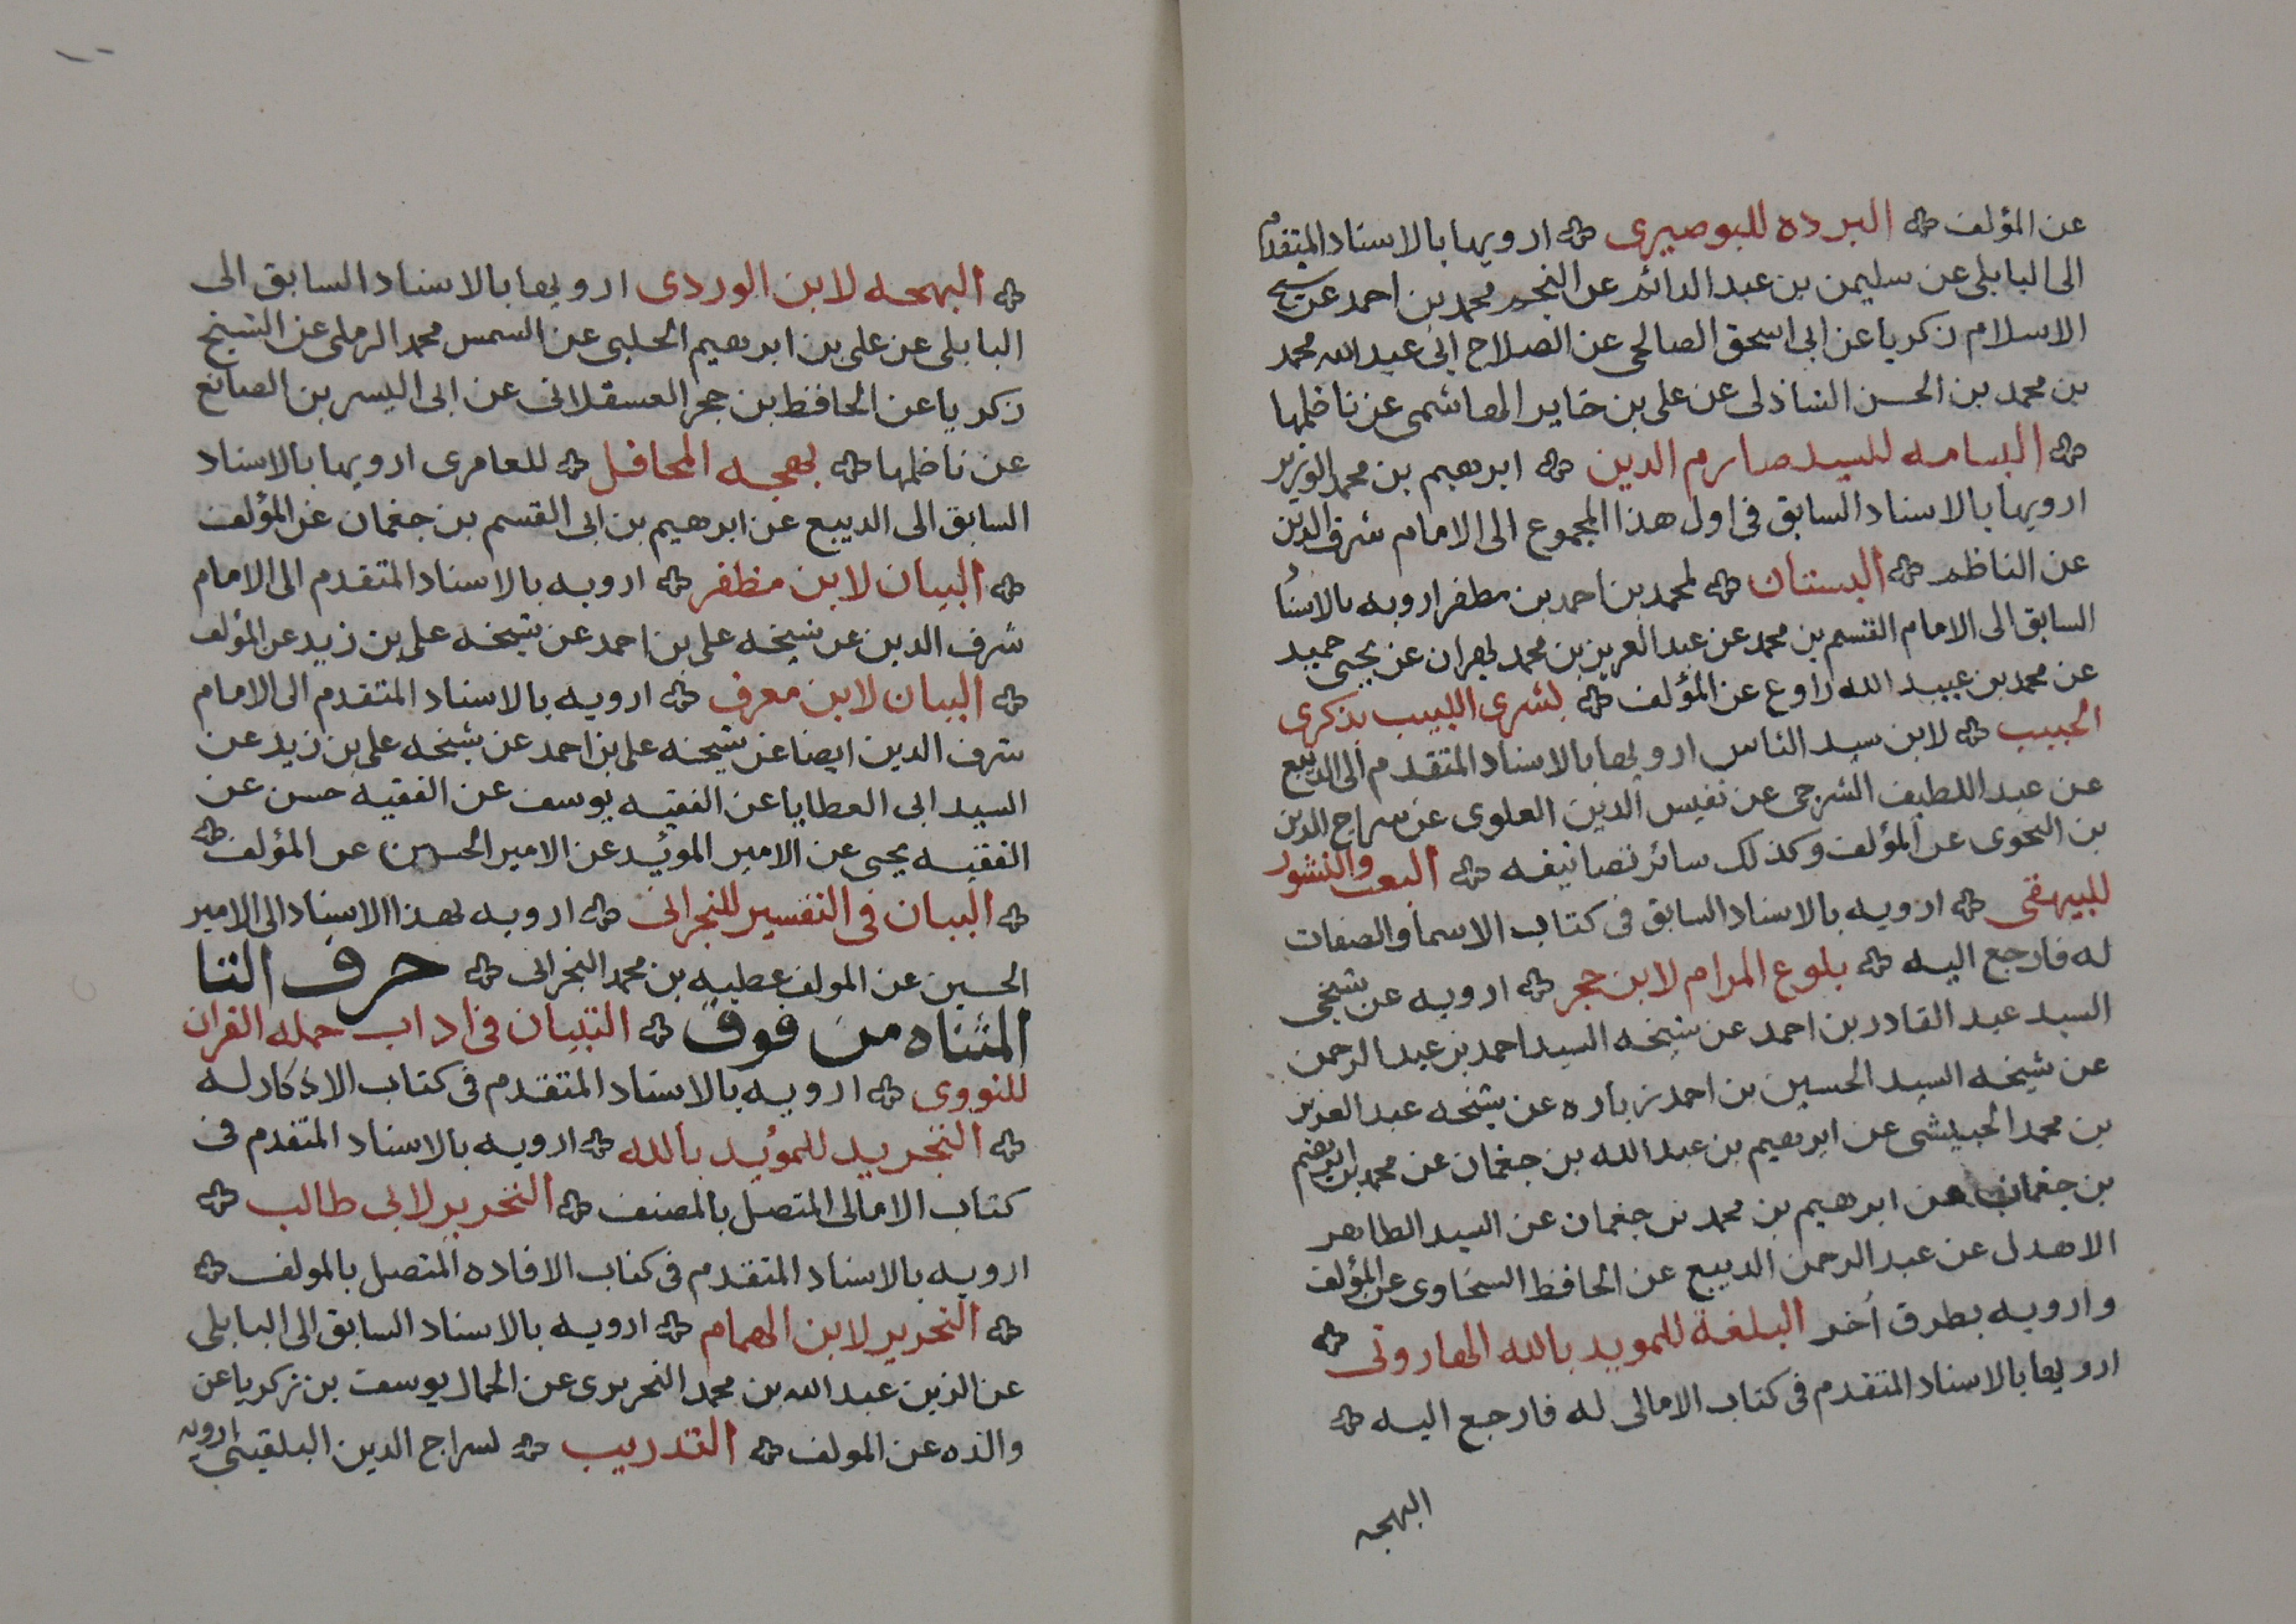 عن المؤلف البرده للبوصيرى ارويها بالاسناد المتقدم
الى البابلى عن سليمن بن عبد الدائم عن النجم محمد بن احمد عن شيخ
الاسلام زكريا عن ابى اسحق الصالحى عن الصلاح ابى عبد الله محمد
بن محمد بن الحسن الشاذلى عن على بن جابر الهاشمى عن ناظمها
البسامه للسيد صارم الدين ابرهيم بن محمد الوزير
ارويها بالاسناد السابق فى اول هذا المجموع الى الامام شرف الدين
عن الناظم البستان لمحمد بن احمد بن مظفر ارويه بالاسناد
السابق الى الامام القسم بن محمد عن عبد العزيز بن محمد بهران عن يحيى حميد
عن محمد بن عبيد الله راوع عن المؤلف بشرى اللبيب بذكرى
الحبيب لابن سيد الناس ارويها بالاسناد المتقدم الى الديبع
عن عبد اللطيف الشرجى عن نفيس الدين العلوى عن سراج الدين
بن النحوى عن المؤلف وكذلك سائر تصانيفه البعث والنشور
للبيهقى ارويه بالاسناد السابق فى كتاب الاسما والصفات
له فارجع اليه بلوغ المرام لابن حجر ارويه عن شيخى
السيد عبد القادر بن احمد عن شيخه السيد احمد بن عبد الرحمن
عن شيخه السيد الحسين بن احمد زباره عن شيخه عبد العزيز
بن محمد الحبيشى عن ابرهيم بن عبد الله بن جغمان عن محمد بن ابرهيم
بن جغمان عن ابرهيم بن محمد بن جغمان عن السيد الطاهر
الاهدل عن عبد الرحمن الديبع عن الحافظ السخاوى عن المؤلف
وارويه بطرق أخر البلغة للمويد بالله الهارونى
ارويها بالاسناد المتقدم فى كتاب الامالى له فارجع اليه
البهجه
البهجه لابن الوردى ارويها بالاسناد السابق الى
البابلى عن على بن ابرهيم الحلبى عن الشمس محمد الرملى عن الشيخ
زكريا عن الحافظ بن حجر العسقلانى عن ابى اليسر بن الصائغ
عن ناظمها بهجه المحافل للعامرى ارويها بالاسناد
السابق الى الديبع عن ابرهيم بن ابى القسم بن جغمان عن المؤلف
البيان لابن مظفر ارويه بالاسناد المتقدم الى الامام
شرف الدين عن شيخه على بن احمد عن شيخه على بن زيد عن المؤلف
البيان لابن معرف ارويه بالاسناد المتقدم الى الامام
شرف الدين ايضا عن شيخه على بن احمد عن شيخه على بن زيد عن
السيد ابى العطايا عن الفقيه يوسف عن الفقيه حسن عن
الفقيه يحيى عن الامير المويد عن الامير الحسين عن المؤلف
البيان فى التفسير للنجرانى ارويه بهذا الاسناد الى الامير
الحسين عن المولف عطيه بن محمد النجرانى حرف التا
المثناه من فوق التبيان فى اداب حمله القران
للنووى ارويه بالاسناد المتقدم فى كتاب الاذكار له
التجريد للمؤيد بالله ارويه بالاسناد المتقدم فى
كتاب الامالى المتصل بالمصنف التحرير لابى طالب
ارويه بالاسناد المتقدم فى كتاب الافاده المتصل بالمولف
التحرير لابن الهمام ارويه بالاسناد السابق الى البابلى
عن الزين عبد الله بن محمد النحريرى عن الجمال يوسف بن زكريا عن
والده عن المولف التدريب لسراج الدين البلقينى ارويه